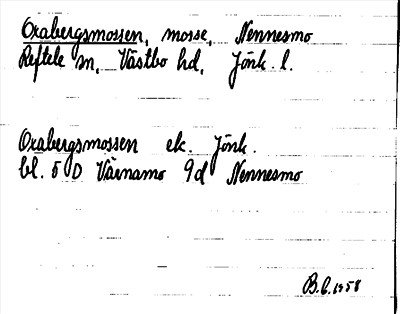 Oxabergsmossen, mosse, Nennesmo
Reftele sn, Västbo hd, Jönk. l.
Oxabergsmossen ek. Jönk.
bl. 5 D Värnamo 9d Nennesmo
B.C. 1958